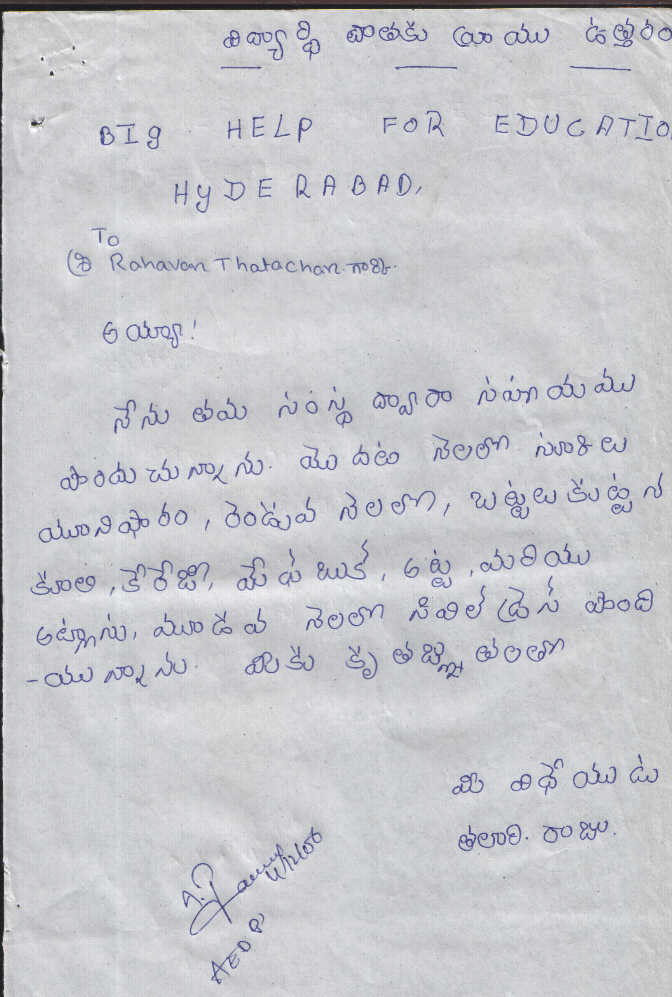 విద్యార్థి దాతకు వ్రాయు ఉత్తరం
BIG HELP FOR EDUCATIO
HYDERABAD,
To
శ్రీ Rahavan Thatachan గారికి.
అయ్యా!
నేను తమ సంస్థ ద్వారా సహాయము
పొందుచున్నాను. మొదటి నెలలో స్కూలు
యూనిఫారం, రెండువ నెలలో, బట్టలు కుట్టిన
కూలి, కేరేజి, మేప్ బుక్, అట్ట, మరియు
అట్లాసు, మూడవ నెలలో సివిల్ డ్రెస్ పొంది
-యున్నాను. మీకు కృతజ్ఞతలతో
మీ విధేయుడు
తలారి. రాజు.
AEO